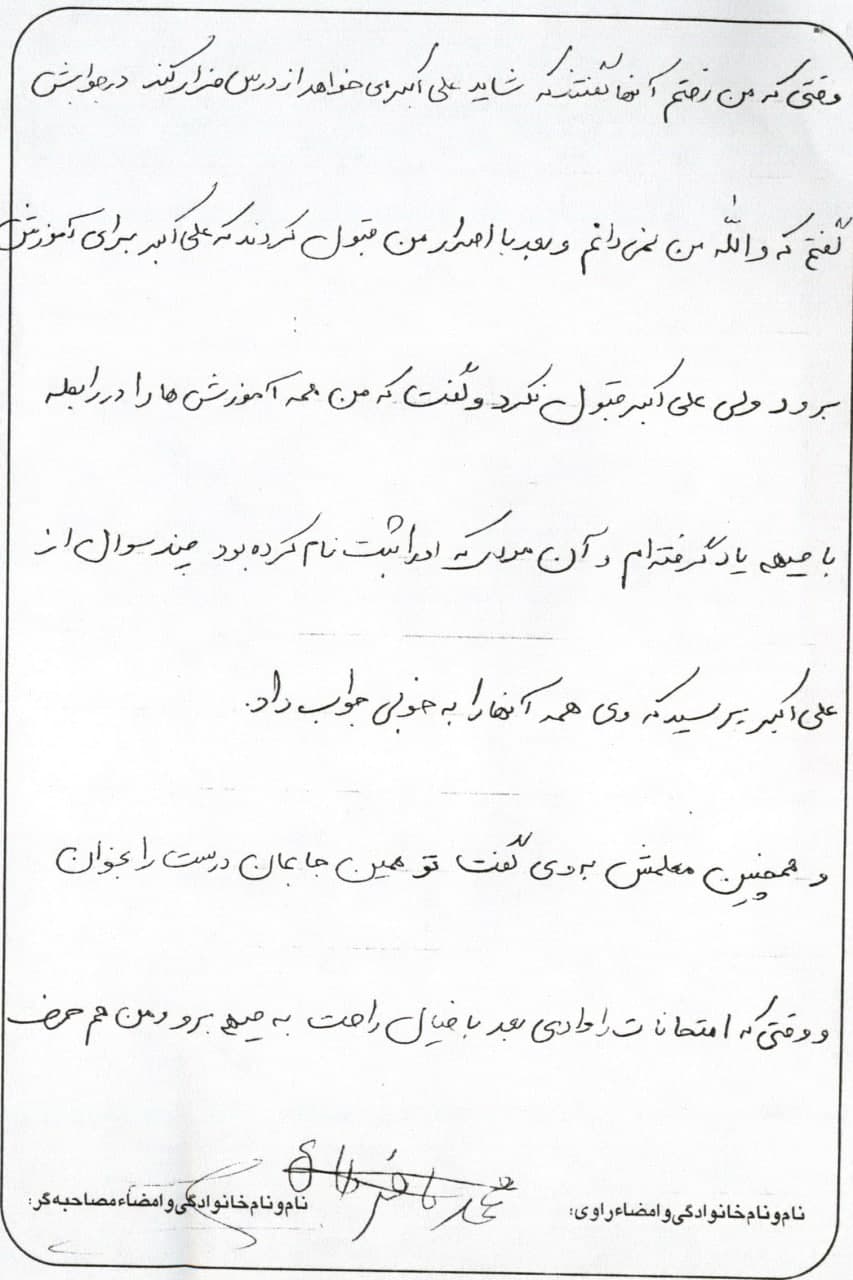 وقتی که من رفتم آنها گفتند که شاید علی اکبر می خواهد از درس فرار کند در جوابش
گفتم که والله من نمی دانم و بعد با اصرار من قبول کردند که علی اکبر برای آموزش
برود ولی علی اکبر قبول نکرد و گفت که من همه آموزش ها را در رابطه
با جبهه یاد گرفته ام و آن مردی که او را ثبت نام کرده بود چند سوال از
علی اکبر پرسید که وی همه آنها را به خوبی جواب داد.
و همچنین معلمش به وی گفت تو همین جا بمان درست را بخوان
و وقتی که امتحانات را دادی بعد با خیال راحت به جبهه برو و من هم حرف
نام و نام خانوادگی و امضاء راوی:
محمد باقر
نام و نام خانوادگی و امضاء مصاحبه گر: